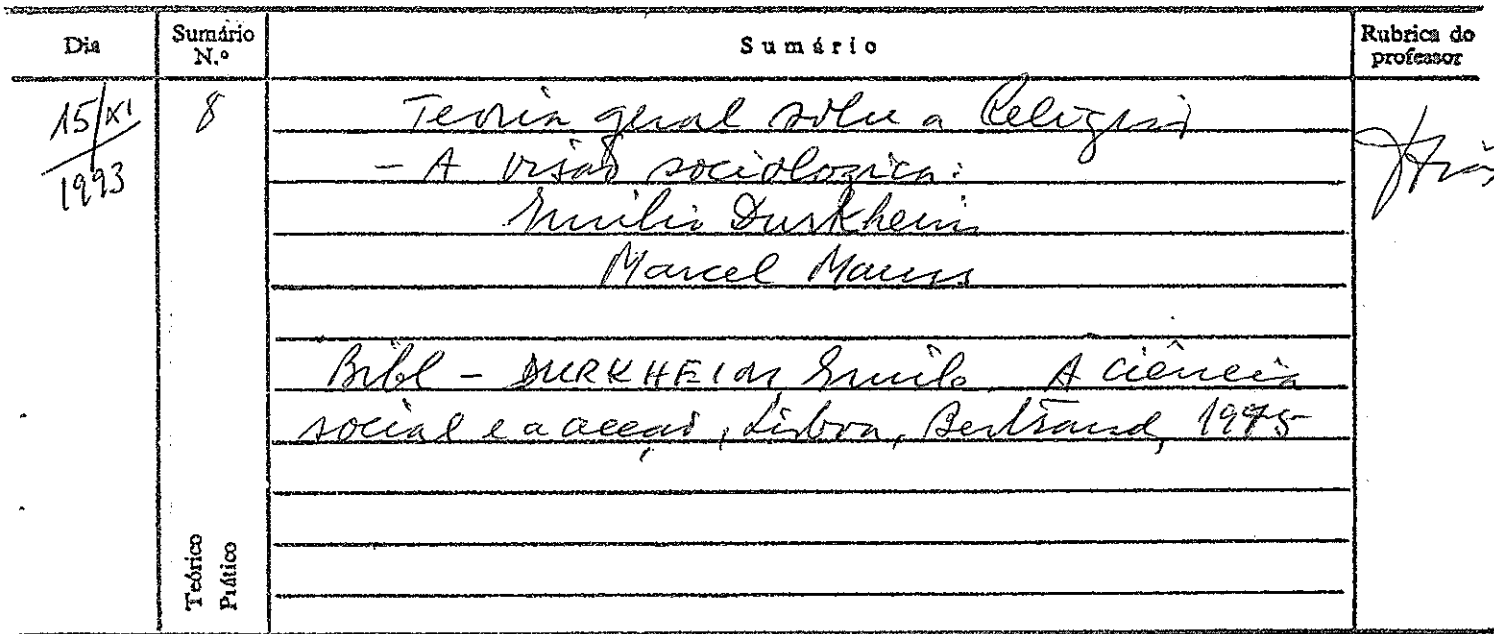 Dia
Sumário N.º
Sumário
Rubrica do professor
15/XI/1993
8
Teoria geral sobre a Religião
- A visão sociologica:
Emilio Durkheim
Marcel Mauss
Bibl - DURKHEIM, Emilio, A ciência
social e a acção, Lisboa, Bertrand, 1975
Teórico
Prático